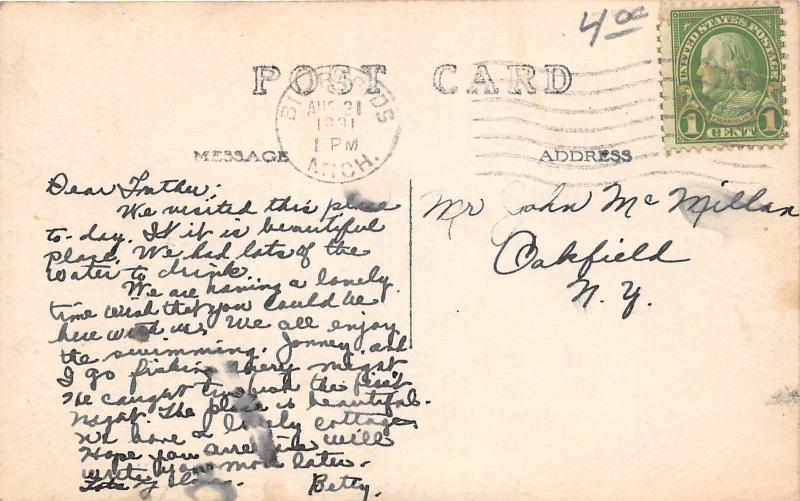 4 00
UNITED STATES POSTAGE
FRANKLIN
1 CENT 1
POST CARD
BIG RAPIDS
AUG 21
1931
1 PM
MICH.
MESSAGE
ADDRESS
Dear Father:
We visited this place
to-day. It it is beautiful
place. We had lots of the
water to drink.
We are having a lovely
time wish that you could be
here with us. We all enjoy
the swimming. Jonney and
I go fishing every night.
He caught two fish the first
night. The place is beautiful.
We have a lovely cottage
Hope you are fine will
write you more later.
Lots of love.
Betty.
Mr John Mc Millan
Oakfield
N.Y.